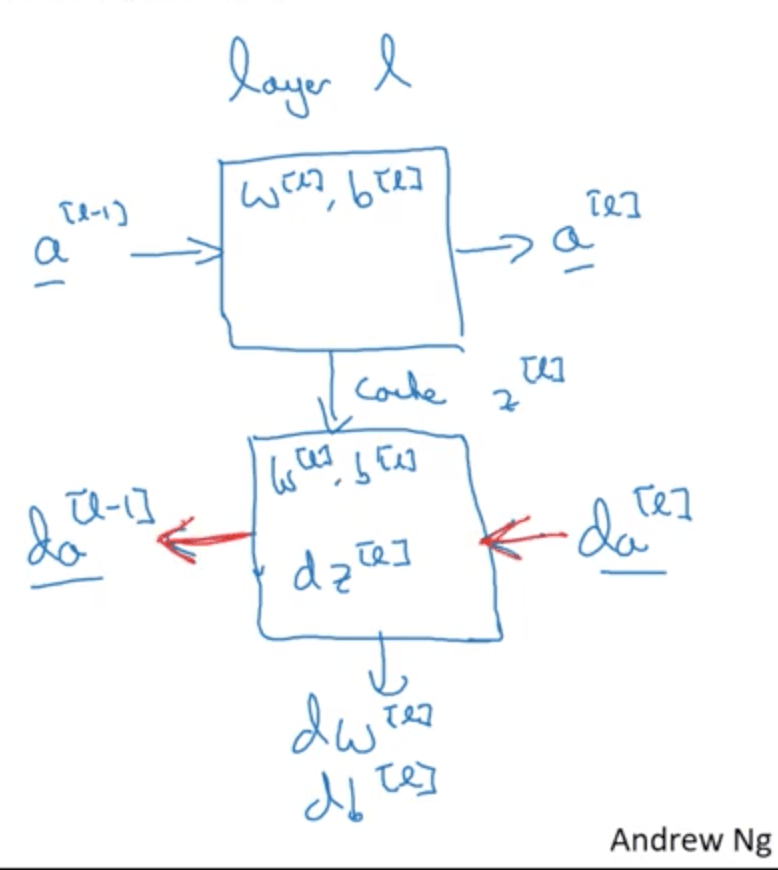 layer l
a^[l-1] → w^[l], b^[l] → a^[l]
cache z^[l]
w^[l], b^[l]
da^[l-1] ← dz^[l] ← da^[l]
dw^[l]
db^[l]
Andrew Ng